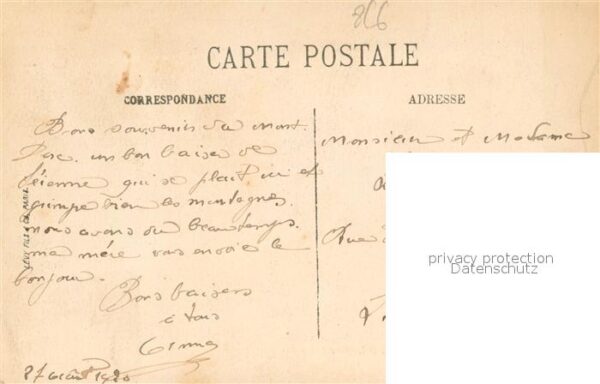 866
CARTE POSTALE
CORRESPONDANCE
ADRESSE
Bons souvenirs du Mont
Dore. un bon baiser de
Etienne qui se plait ici et
grimpe bien les montagnes.
nous avons du beau temps.
ma mère vous envoie le
bonjour.
Bons baisers
à tous
27 août 1920
Monsieur et Madame
Rue
privacy protection
Datenschutz
LEVY FILS & Cie, PARIS